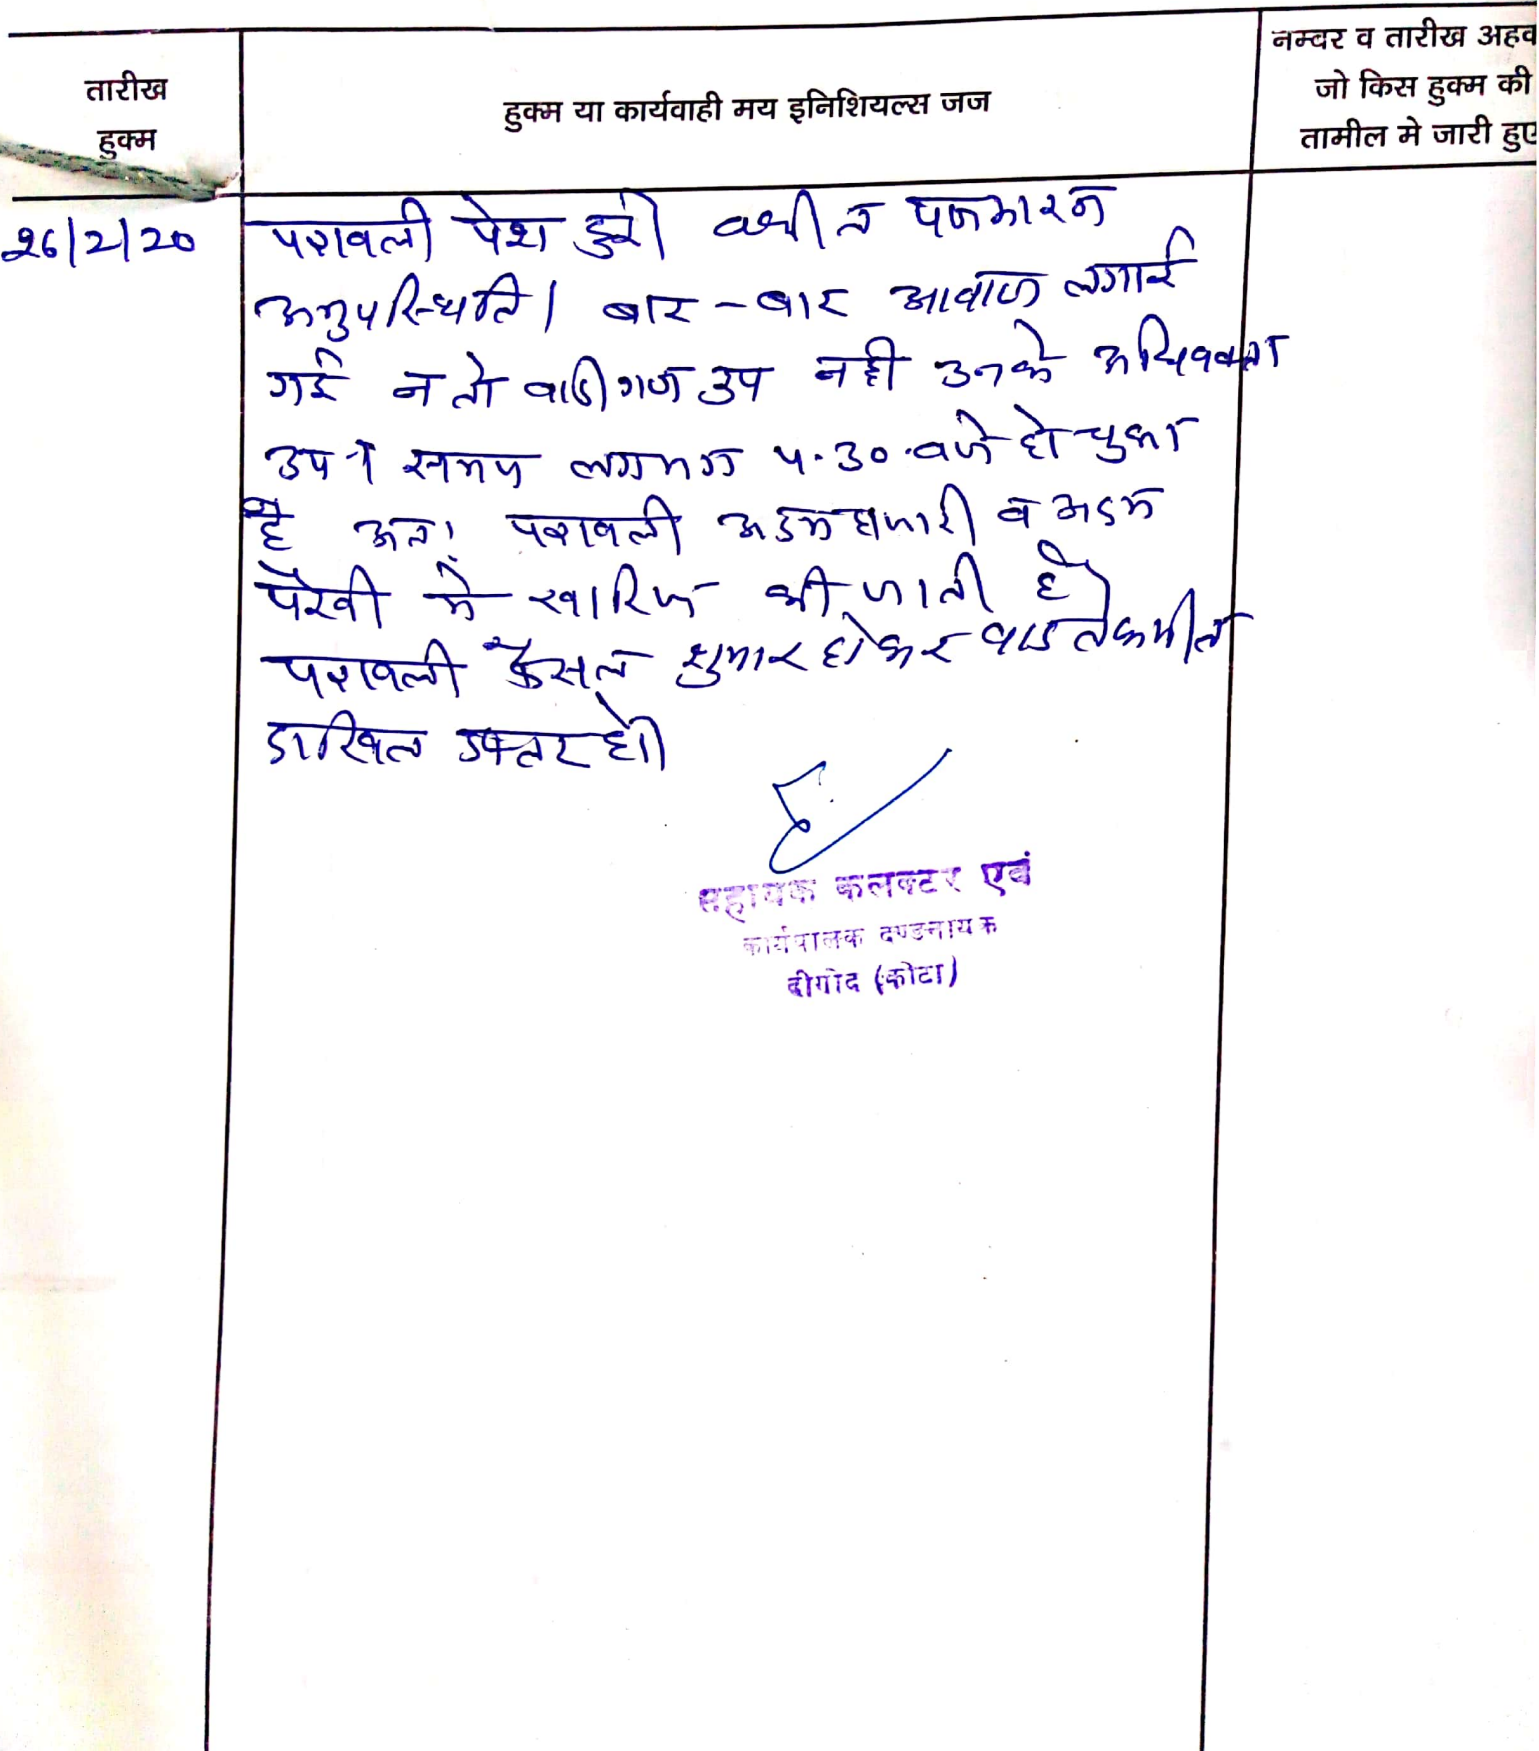 तारीख
हुक्म
हुक्म या कार्यवाही मय इनिशियल्स जज
नम्बर व तारीख अहव
जो किस हुक्म की
तामील मे जारी हुए
26/2/20
पत्रावली पेश हुई। वकील पक्षकारन
अनुपस्थिति। बार-बार आवाज लगाई
गई न तो वादीगण उप नही उनके अधिवक्ता
उप। समय लगभग 4.30 बजे हो चुका
है अतः पत्रावली अदम हाजरी व अदम
पैरवी मे खारिज की जाती है।
पत्रावली फैसल शुमार होकर बाद तकमील
दाखिल दफ्तर हो।
सहायक कलक्टर एवं
कार्यपालक दण्डनायक
दीगोद (कोटा)